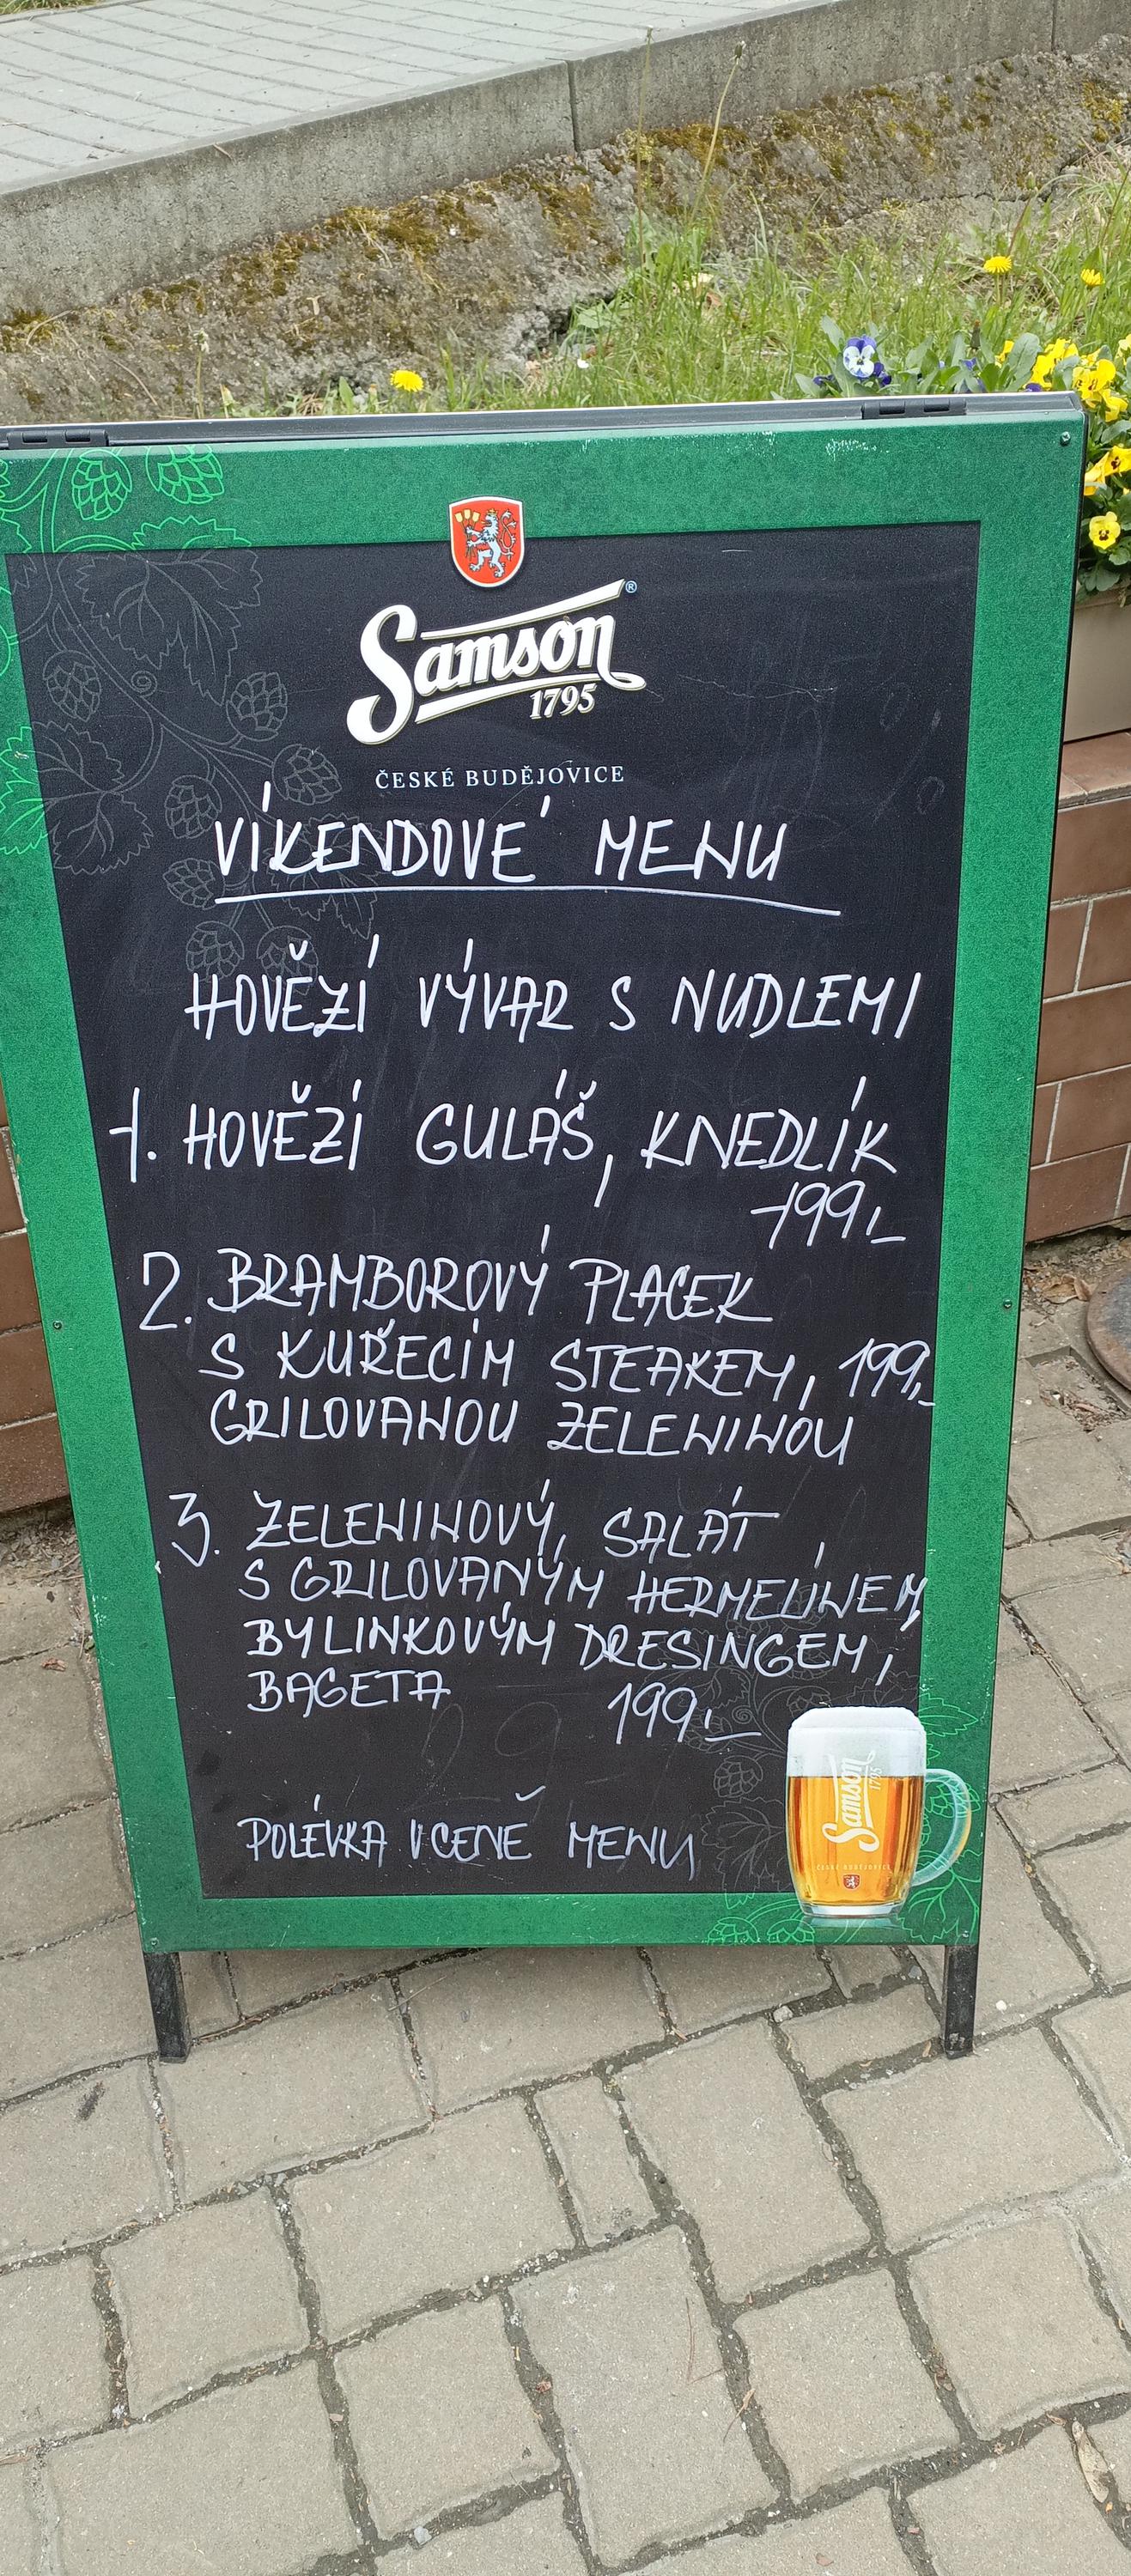 Samson®
1795
ČESKÉ BUDĚJOVICE
VÍKENDOVÉ MENU
HOVĚZÍ VÝVAR S NUDLEMI
1. HOVĚZÍ GULÁŠ, KNEDLÍK
199,-
2. BRAMBOROVÝ PLACEK
S KUŘECÍM STEAKEM, 199,-
GRILOVANOU ZELENINOU
3. ZELENINOVÝ SALÁT
S GRILOVANÝM HERMELÍNEM,
BYLINKOVÝM DRESINGEM,
BAGETA 199,-
POLÉVKA V CENĚ MENU
Samson
1795
ČESKÉ BUDĚJOVICE